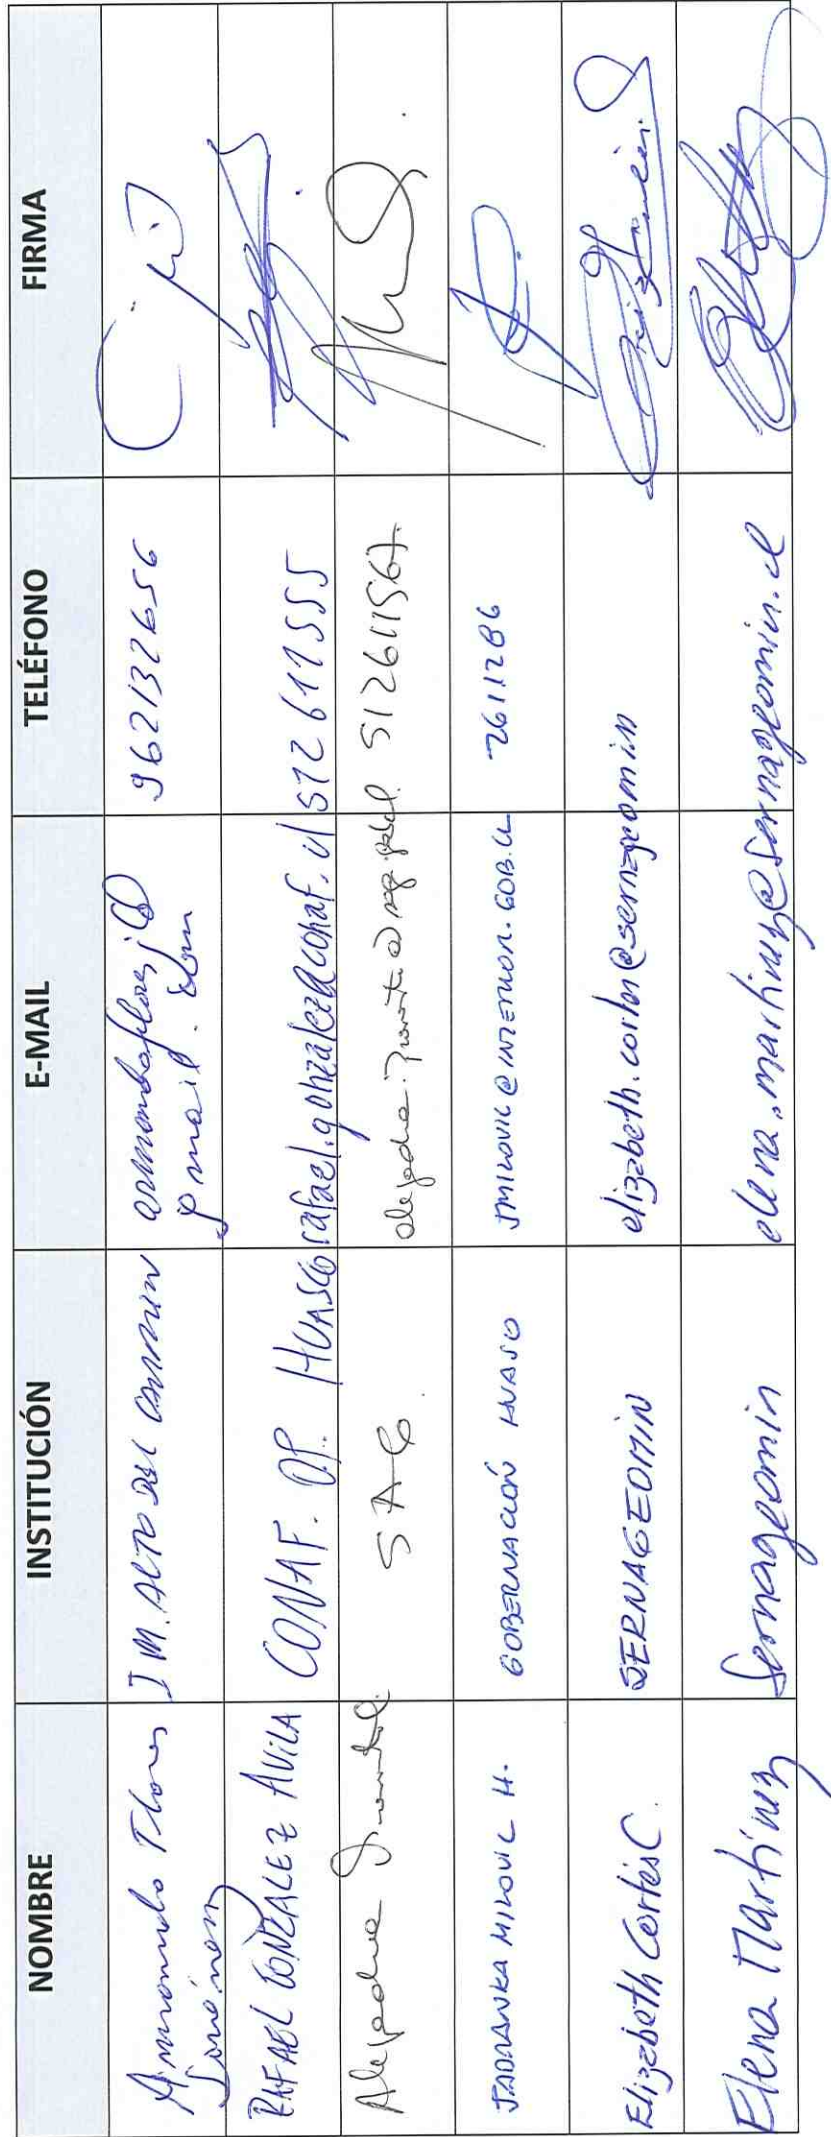 NOMBRE INSTITUCIÓN E-MAIL TELÉFONO FIRMA
Armando Flores I M. ALTO DEL CARMEN armandofloresj@ 962132656
Jiménez gmail.com
RAFAEL GONZALEZ AVILA CONAF. DP. HUASCO rafael.gonzalez@conaf.cl 512611555
Alejandra SAG 512611567.
JADRANKA MILOVIC H. GOBERNACIÓN HUASCO JMILOVIC@INTERIOR.GOB.CL 2611286
Elizabeth Cortés C. SERNAGEOMIN elizabeth.cortes@sernageomin
Elena Martínez Sernageomin elena.martinez@sernageomin.cl